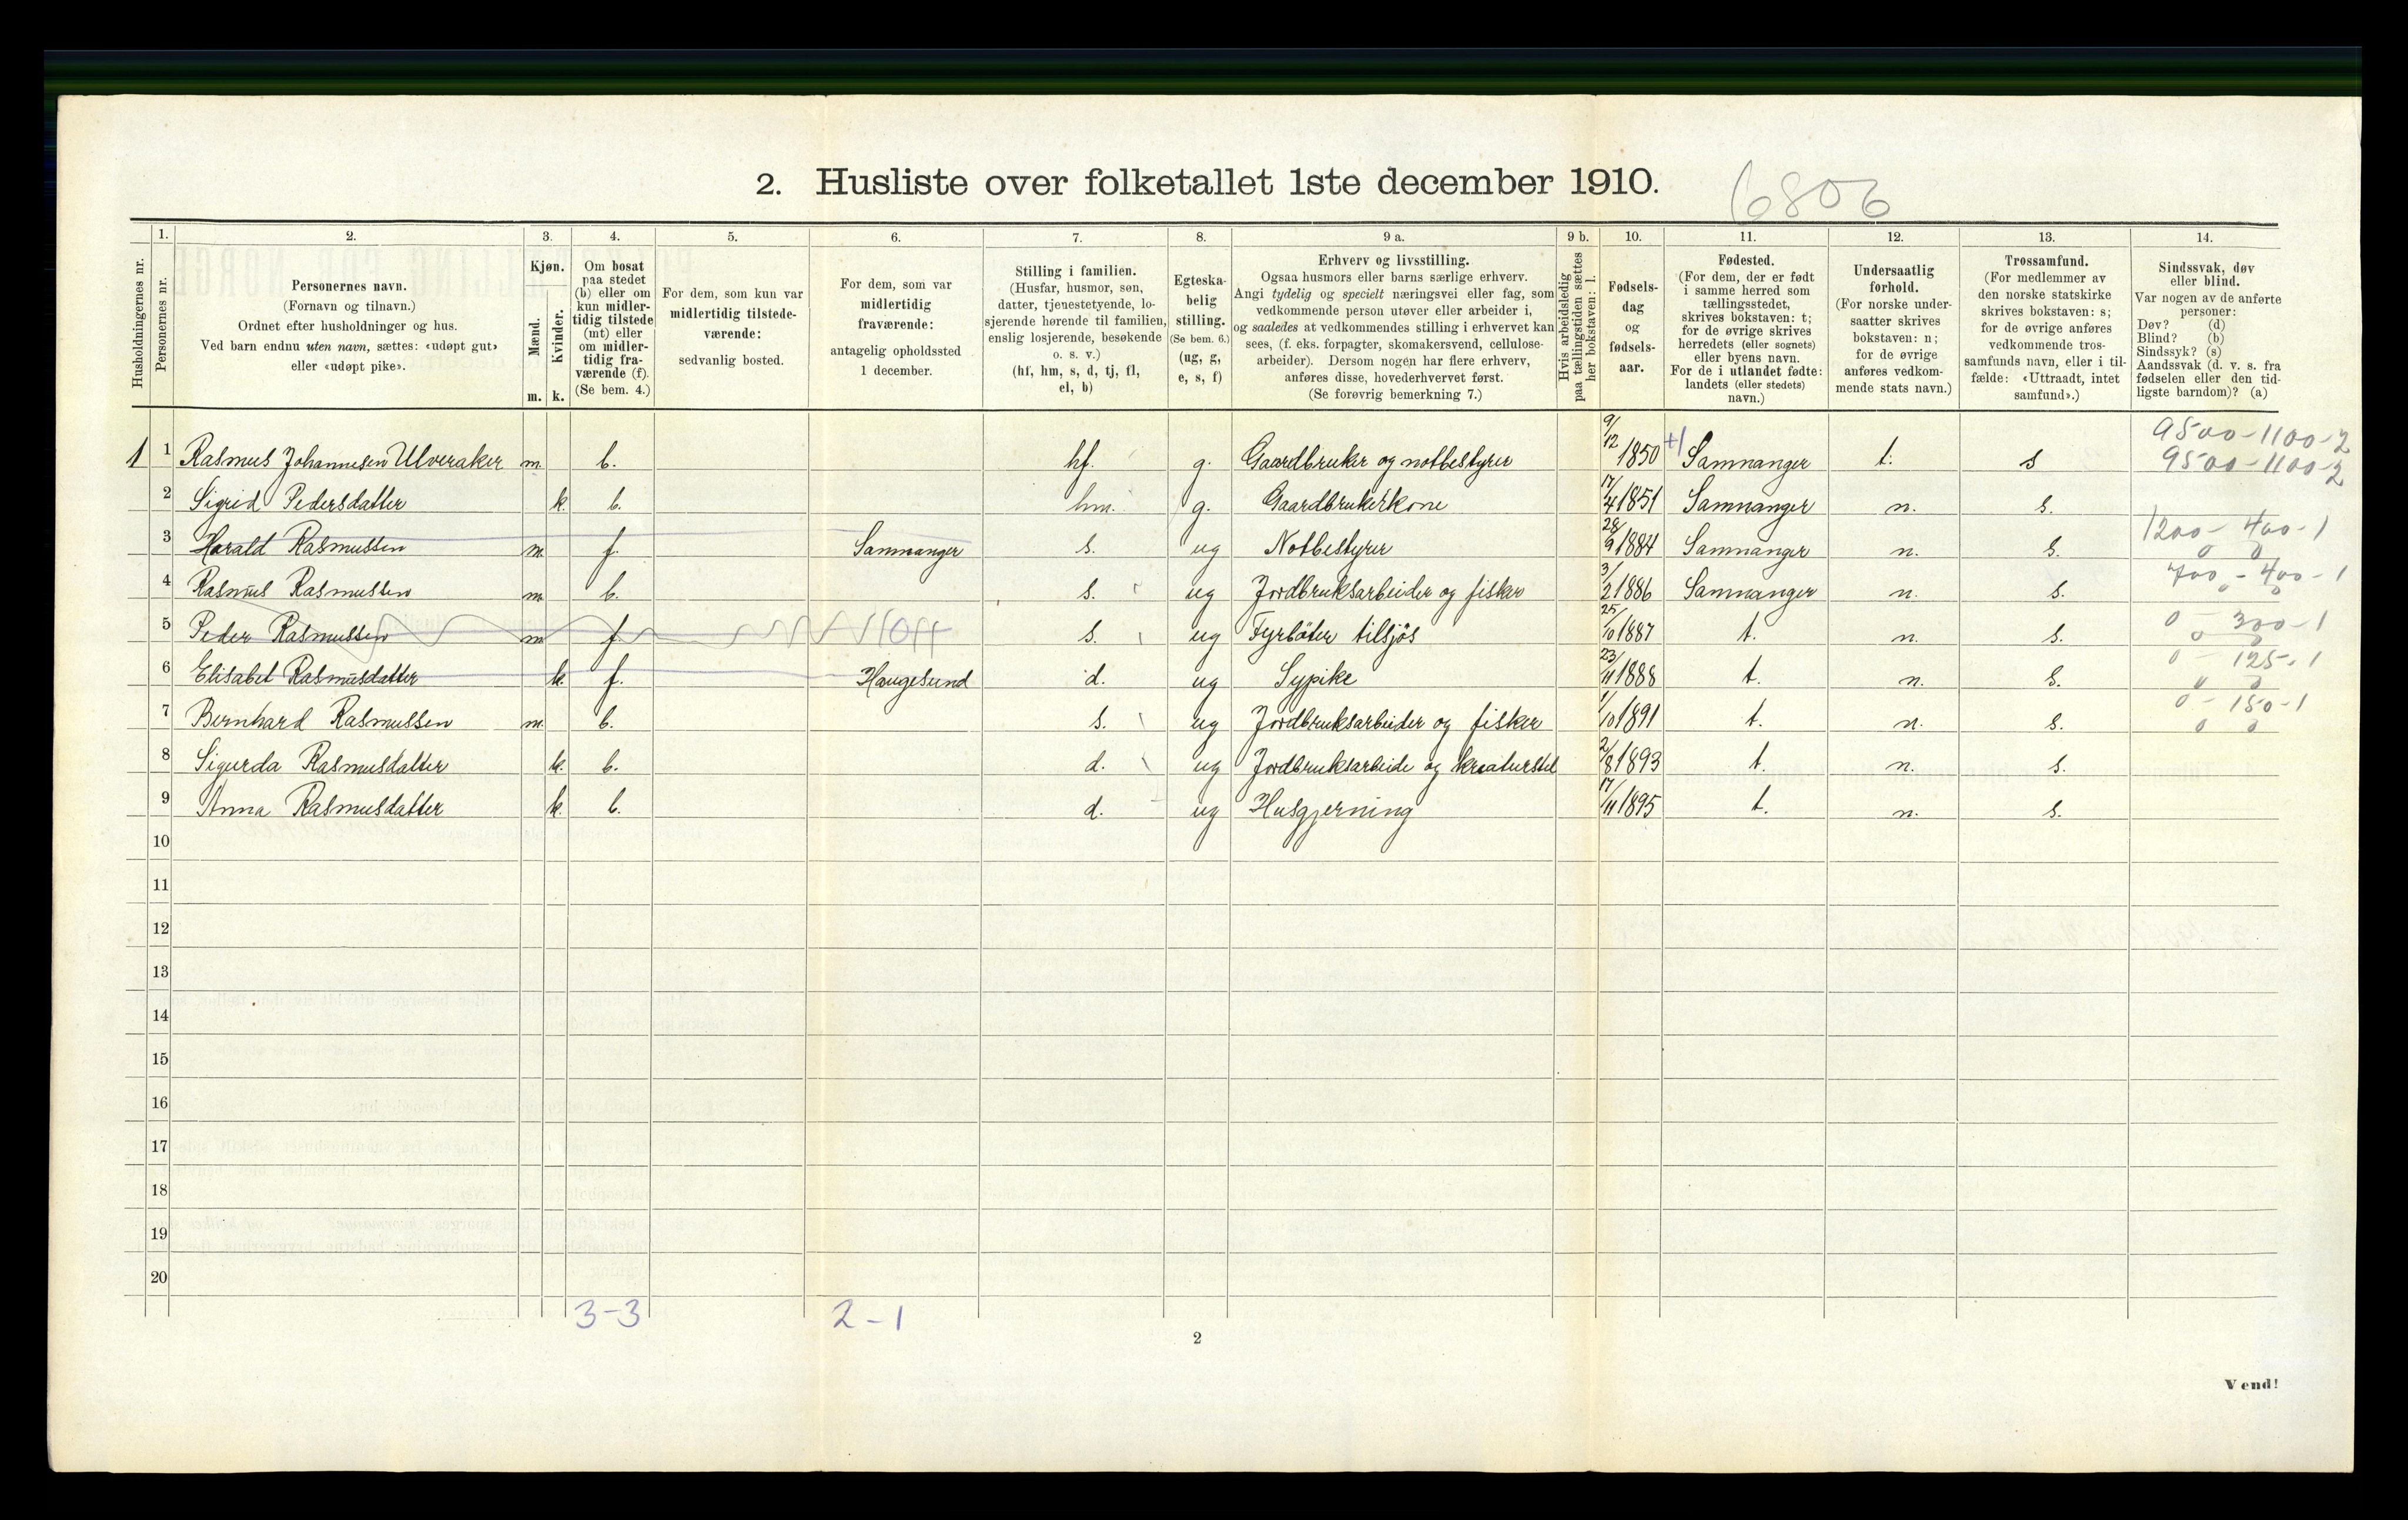 2. Husliste over folketallet 1ste december 1910.
6806
1. 2. 3. 4. 5. 6. 7. 8. 9 a. 9 b. 10. 11. 12. 13. 14.
Husholdningernes nr.
Personernes nr.
Personernes navn.
(Fornavn og tilnavn.)
Ordnet efter husholdninger og hus.
Ved barn endnu uten navn, sættes: «udøpt gut»
eller «udøpt pike».
Kjøn.
Mænd.
Kvinder.
m. k.
Om bosat
paa stedet
(b) eller om
kun midler-
tidig tilstede
(mt) eller
om midler-
tidig fra-
værende (f).
(Se bem. 4.)
For dem, som kun var
midlertidig tilstede-
værende:
sedvanlig bosted.
For dem, som var
midlertidig
fraværende:
antagelig opholdssted
1 december.
Stilling i familien.
(Husfar, husmor, søn,
datter, tjenestetyende, lo-
sjerende hørende til familien,
enslig losjerende, besøkende
o. s. v.)
(hf, hm, s, d, tj, fl,
el, b)
Egteska-
belig
stilling.
(Se bem. 6.)
(ug, g,
e, s, f)
Erhverv og livsstilling.
Ogsaa husmors eller barns særlige erhverv.
Angi tydelig og specielt næringsvei eller fag, som
vedkommende person utøver eller arbeider i,
og saaledes at vedkommendes stilling i erhvervet kan
sees, (f. eks. forpagter, skomakersvend, cellulose-
arbeider). Dersom nogen har flere erhverv,
anføres disse, hovederhvervet først.
(Se forøvrig bemerkning 7.)
Hvis arbeidsledig
paa tællingstiden sættes
her bokstaven: l.
Fødsels-
dag
og
fødsels-
aar.
Fødested.
(For dem, der er født
i samme herred som
tællingsstedet,
skrives bokstaven: t;
for de øvrige skrives
herredets (eller sognets)
eller byens navn.
For de i utlandet fødte:
landets (eller stedets)
navn.)
Undersaatlig
forhold.
(For norske under-
saatter skrives
bokstaven: n;
for de øvrige
anføres vedkom-
mende stats navn.)
Trossamfund.
(For medlemmer av
den norske statskirke
skrives bokstaven: s;
for de øvrige anføres
vedkommende tros-
samfunds navn, eller i til-
fælde: «Uttraadt, intet
samfund».)
Sindssvak, døv
eller blind.
Var nogen av de anførte
personer:
Døv? (d)
Blind? (b)
Sindssyk? (s)
Aandssvak (d. v. s. fra
fødselen eller den tid-
ligste barndom)? (a)
9500-1100-2
1 1 Rasmus Johannesen Ulveraker m. b. hf. g. Gaardbruker og notbestyrer 9/12 1850 +1 Samnanger t. s 9500-1100-2
2 Sigrid Pedersdatter k. b. hm. g. Gaardbrukerkone 17/4 1851 Samnanger n. s.
1200-400-1
3 Harald Rasmussen m. f. Samnanger s. ug Notbestyrer 28/9 1884 Samnanger n. s. 0 0
700-400-1
4 Rasmus Rasmussen m. b. s. ug Jordbruksarbeider og fisker 3/2 1886 Samnanger n. s. 0 0
0-300-1
5 Peder Rasmussen m f. s. ug Fyrbøter tilsjøs 25/10 1887 t. n. s. 0 0
0-125-1
6 Elisabet Rasmusdatter k. f. Haugesund d. ug Sypike 23/11 1888 t. n. s. 0 0
0-150-1
7 Bernhard Rasmussen m. b. s. ug Jordbruksarbeider og fisker 1/10 1891 t. n. s. 0 0
8 Sigurda Rasmusdatter k. b. d. ug Jordbruksarbeide og kreaturstel 2/8 1893 t. n. s.
9 Anna Rasmusdatter k. b. d. ug Husgjerning 17/11 1895 t. n. s.
10
11
12
13
14
15
16
17
18
19
20
3-3 2-1
2
Vend!